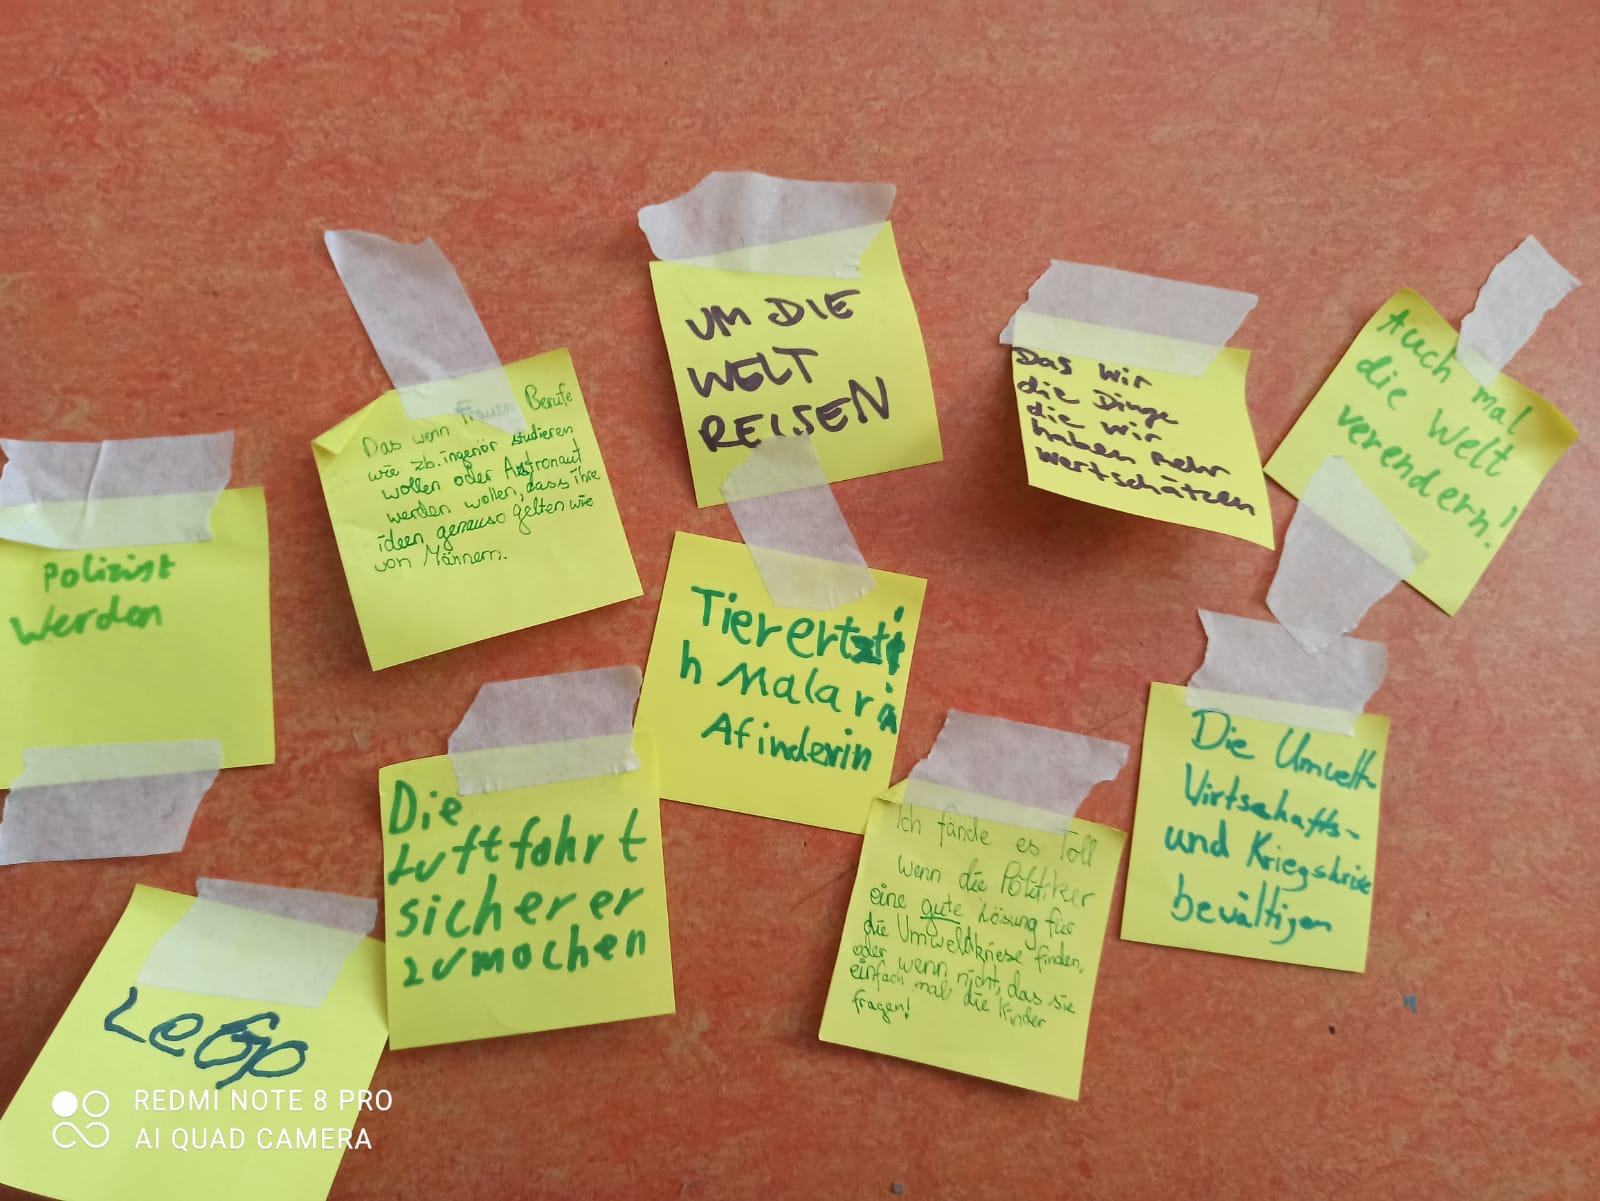 UM DIE
WELT
REISEN
Das wir
die Dinge
die wir
haben mehr
wertschätzen
Auch mal
die Welt
verendern!
Das wenn Frauen Berufe
wie zb. ingenör studieren
wollen oder Astronaut
werden wollen, dass ihre
ideen genauso gelten wie
von Männern.
Polizist
Werden
Tierertzti
h Malarin
Afinderin
Die Umwelt-
Wirtschafts-
und Kriegskrise
bewältigen
Die
Luftfahrt
sicherer
zumachen
Ich fände es Toll
wenn die Politiker
eine gute Lösung für
die Umweldkriese finden,
oder wenn nicht, das sie
einfach mal die Kinder
fragen!
LeGo
REDMI NOTE 8 PRO
AI QUAD CAMERA